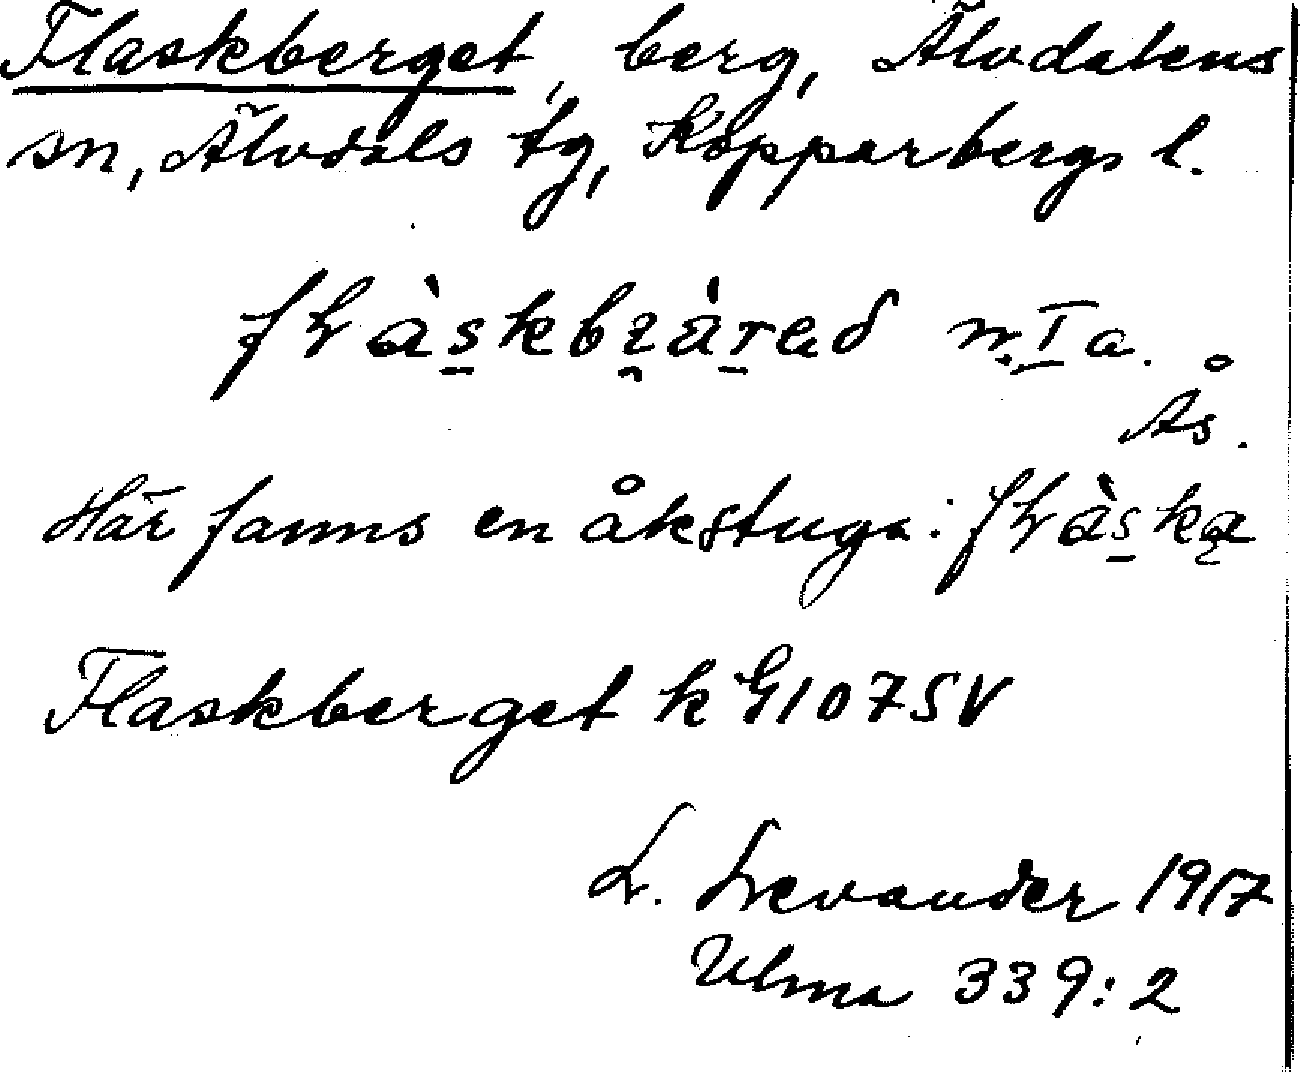 Flaskberget, berg, Älvdalens
sn, Älvdals tg, Kopparbergs l.
n. I a.
Ås.
Här fanns en åkstuga:
Flaskberget k G 107 SV
L. Levander 1917
Ulma 339:2